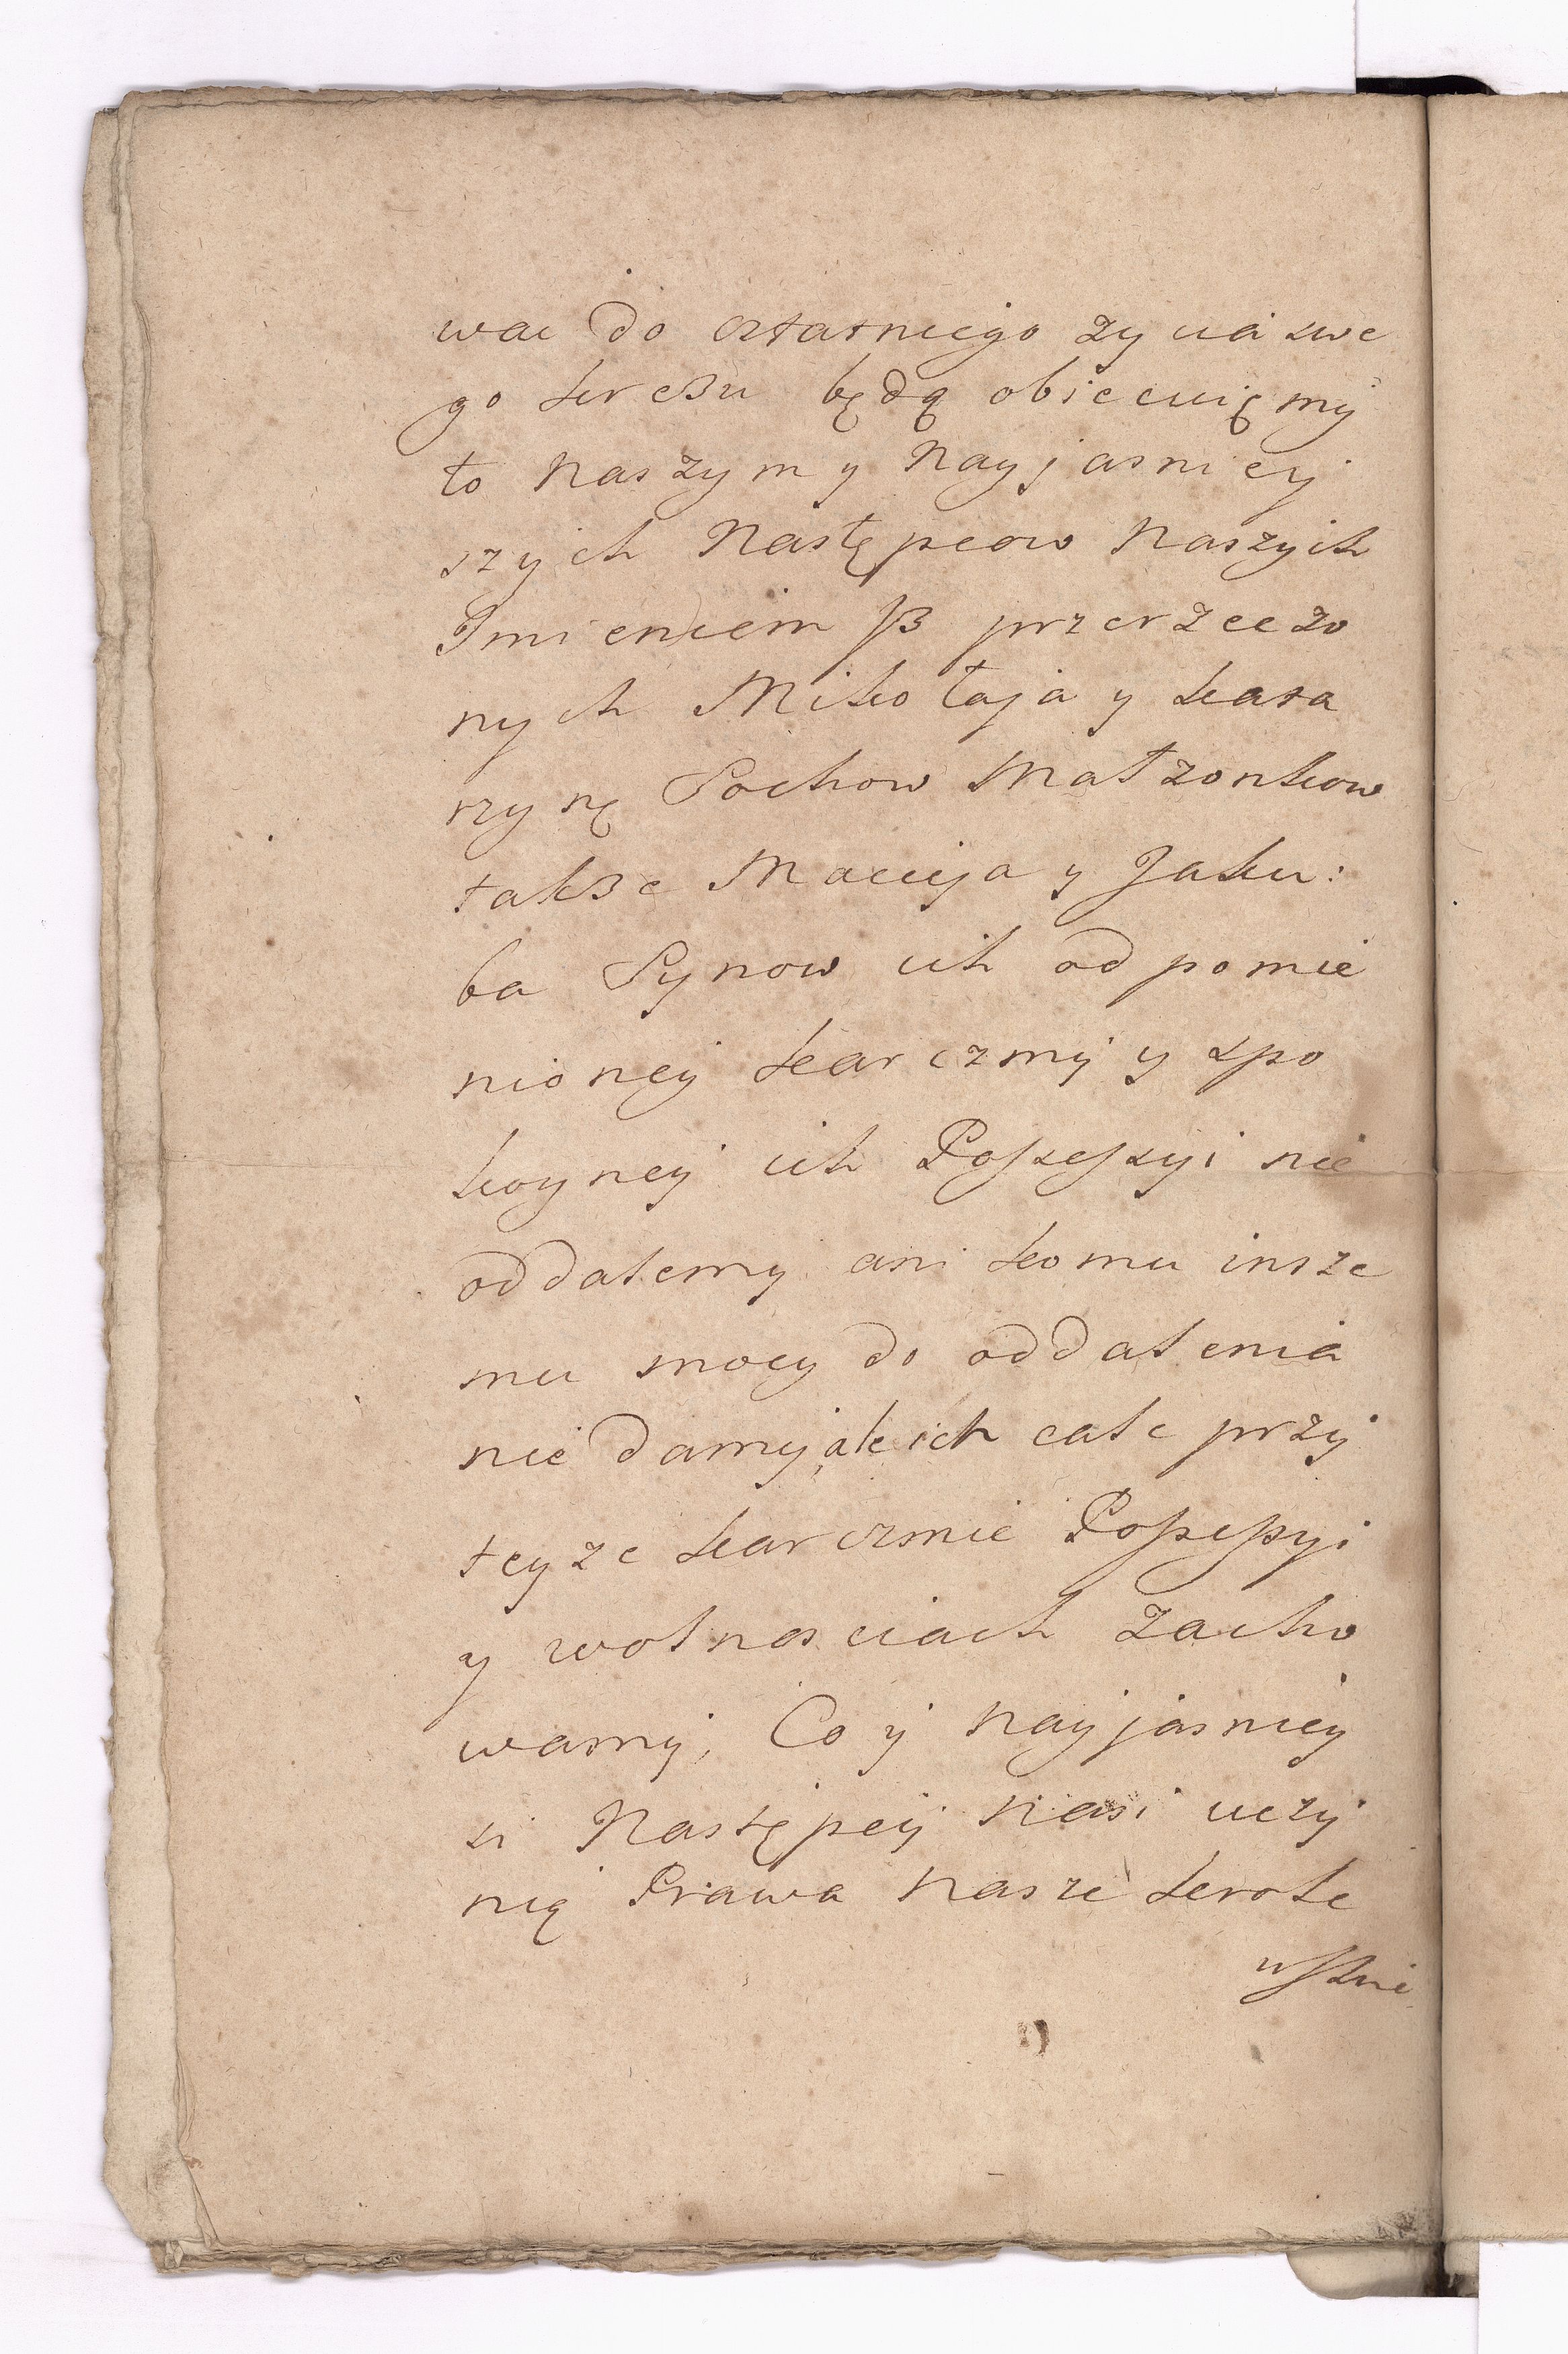 wac do ostatniego zycia swe
go kreßu będą obiecuięmy
to naszym y Nayjasniey
szych Następcow Naszych
Jmieniem iß przerzeczo
nych Mikołaja y Kata
rzynę Sochow Małzonkow
takße Macieja y Jaku:
ba Synow ich od pomie
nioney karczmy y spo
koyney ich Possessyi nie
oddalemy ani komu insze
mu mocy do oddalenia
nie damy, ale ich cale przy
teyze karczmie Possessyi
y wolnosciach zacho
wamy, Co y Nayjasniey
si Następcy Nasi uczy
nią Prawa Nasze Krole
wskie